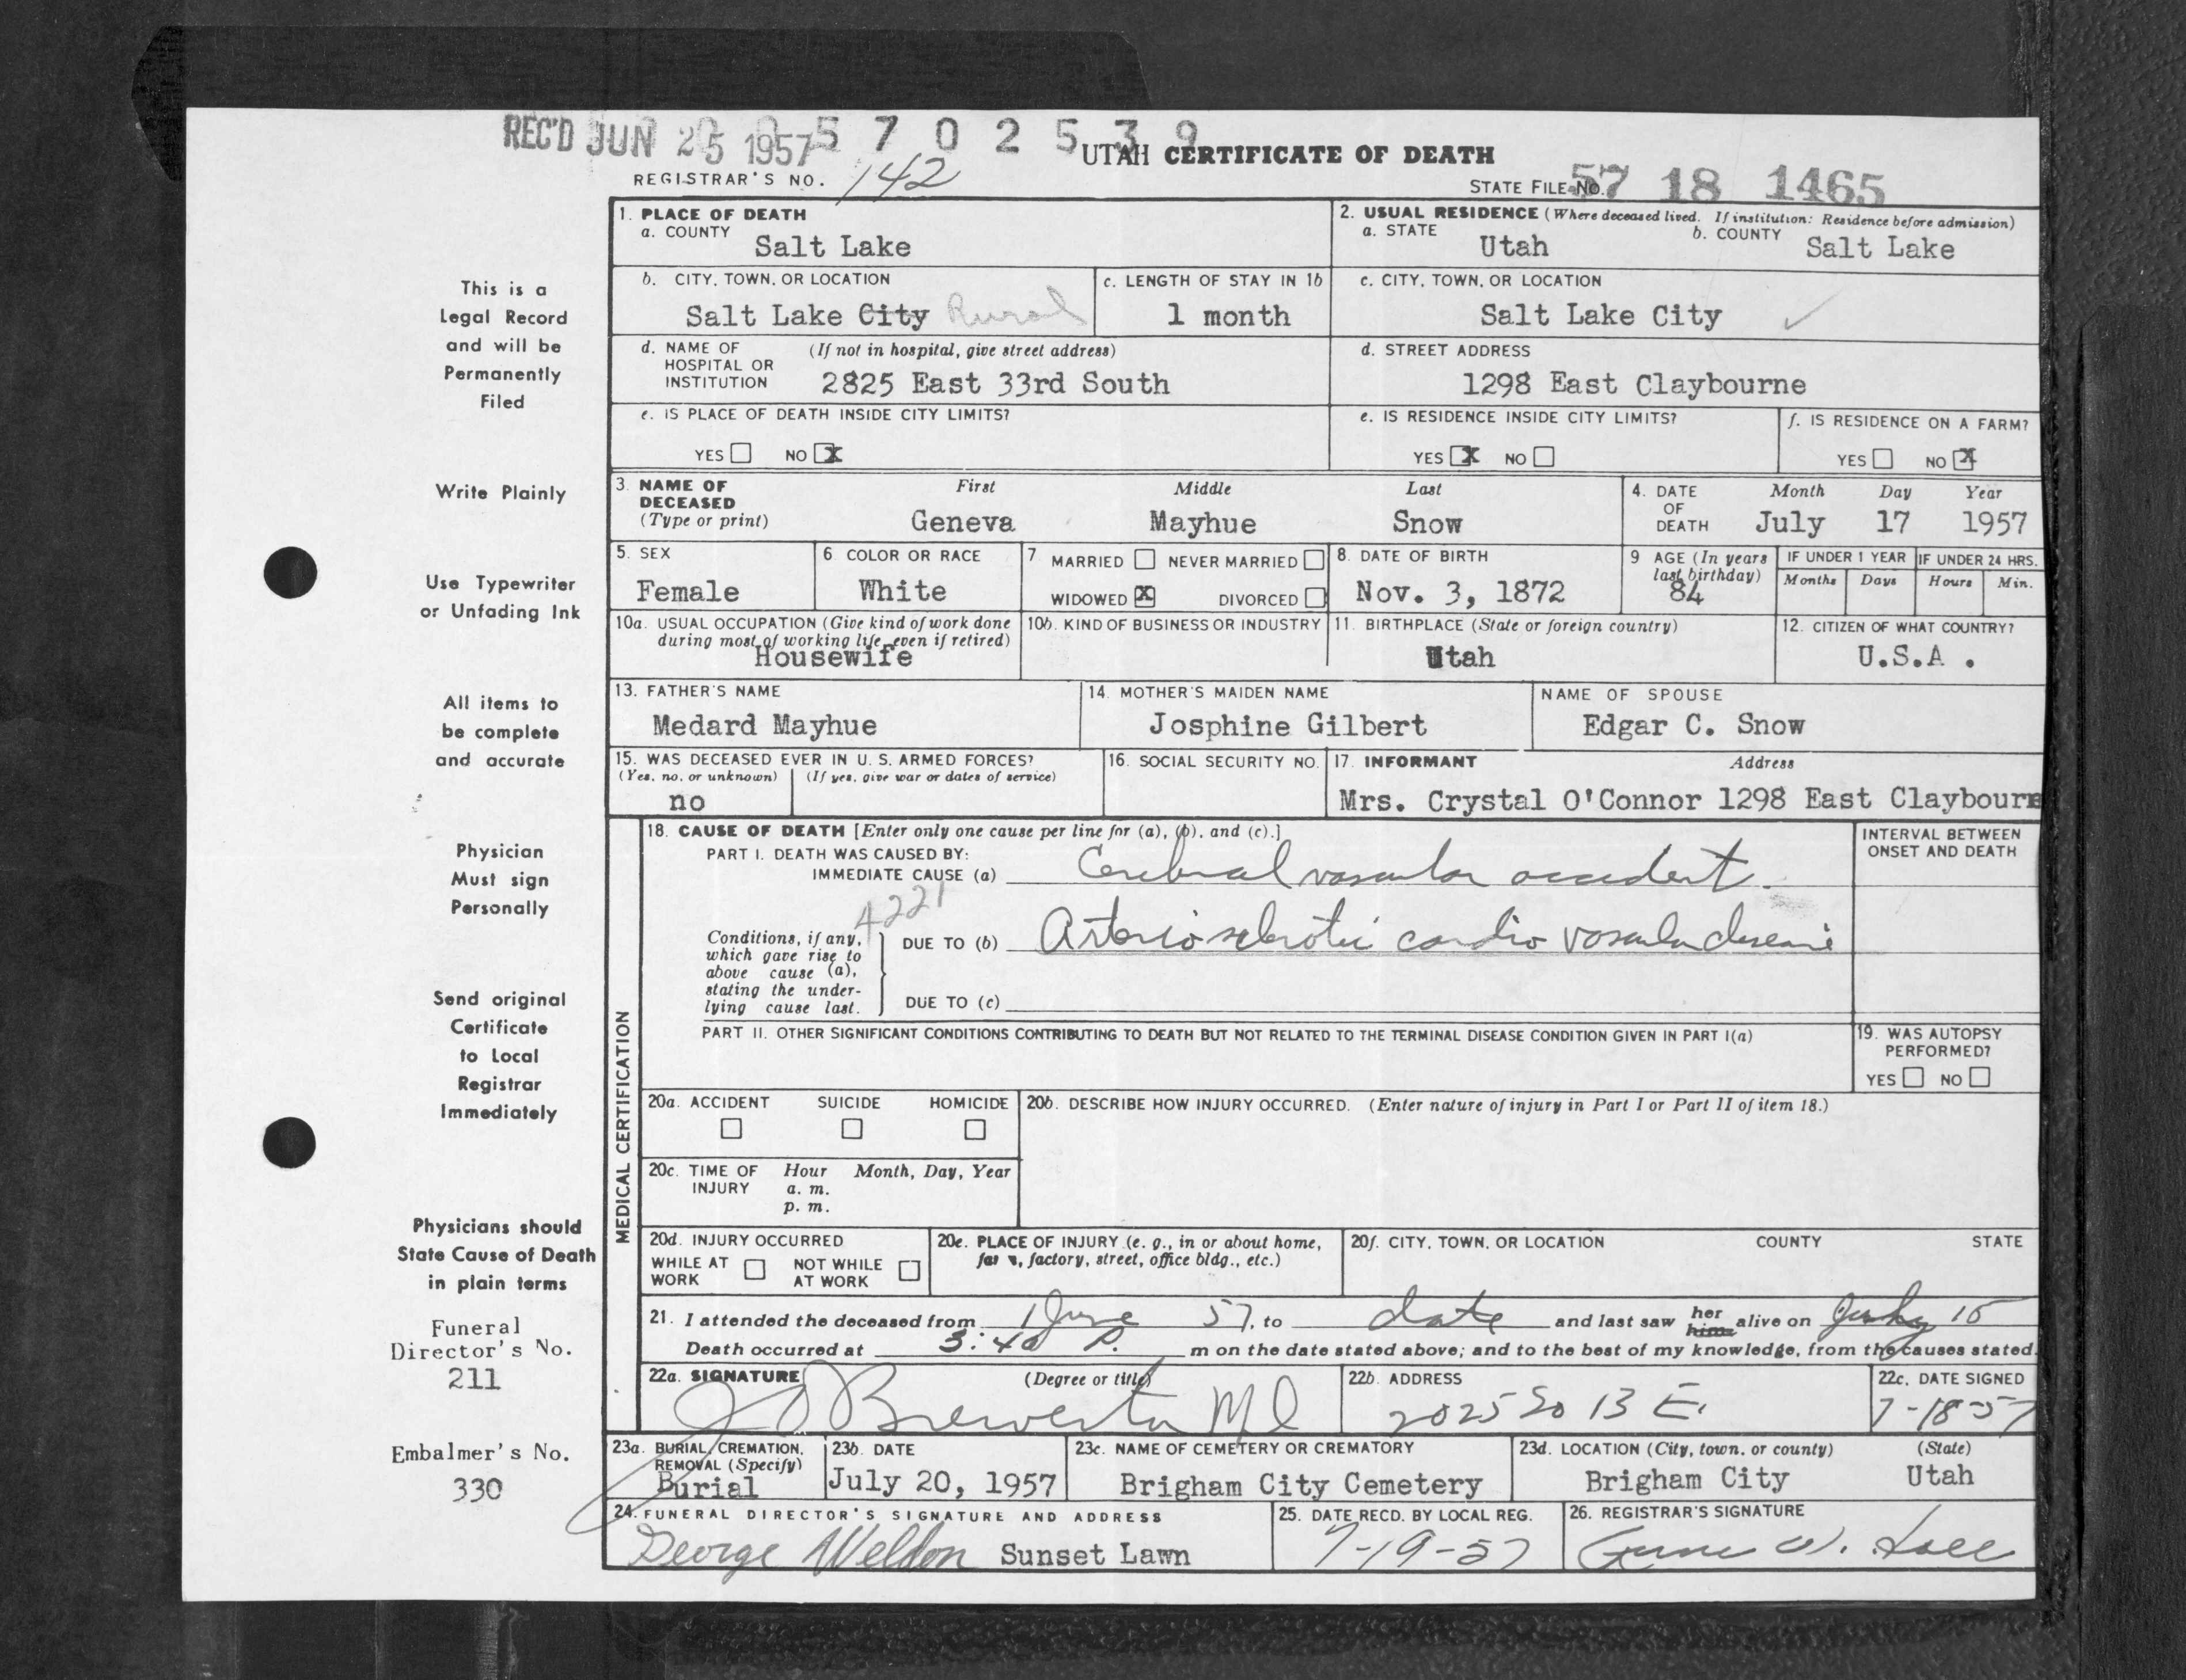 REC'D JUN 25 1957 5 7 0 2 5 3 9
UTAH CERTIFICATE OF DEATH
REGISTRAR'S NO. 142
STATE FILE NO. 57 18 1465
1. PLACE OF DEATH
a. COUNTY
Salt Lake
2. USUAL RESIDENCE (Where deceased lived. If institution: Residence before admission)
a. STATE Utah b. COUNTY Salt Lake
b. CITY, TOWN, OR LOCATION
Salt Lake City Rural
c. LENGTH OF STAY IN 1b
1 month
c. CITY, TOWN, OR LOCATION
Salt Lake City
d. NAME OF (If not in hospital, give street address)
HOSPITAL OR
INSTITUTION 2825 East 33rd South
d. STREET ADDRESS
1298 East Claybourne
e. IS PLACE OF DEATH INSIDE CITY LIMITS?
YES NO X
e. IS RESIDENCE INSIDE CITY LIMITS?
YES X NO
f. IS RESIDENCE ON A FARM?
YES NO X
3. NAME OF DECEASED (Type or print)
First Middle Last
Geneva Mayhue Snow
4. DATE OF DEATH
Month Day Year
July 17 1957
5. SEX
Female
6. COLOR OR RACE
White
7 MARRIED NEVER MARRIED
WIDOWED X DIVORCED
8. DATE OF BIRTH
Nov. 3, 1872
9 AGE (In years last birthday)
84
IF UNDER 1 YEAR
Months Days
IF UNDER 24 HRS.
Hours Min.
10a. USUAL OCCUPATION (Give kind of work done
during most of working life, even if retired)
Housewife
10b. KIND OF BUSINESS OR INDUSTRY
11. BIRTHPLACE (State or foreign country)
Utah
12. CITIZEN OF WHAT COUNTRY?
U.S.A .
13. FATHER'S NAME
Medard Mayhue
14. MOTHER'S MAIDEN NAME
Josphine Gilbert
NAME OF SPOUSE
Edgar C. Snow
15. WAS DECEASED EVER IN U. S. ARMED FORCES?
(Yes, no, or unknown) (If yes, give war or dates of service)
no
16. SOCIAL SECURITY NO.
17. INFORMANT Address
Mrs. Crystal O'Connor 1298 East Claybourn
MEDICAL CERTIFICATION
18. CAUSE OF DEATH [Enter only one cause per line for (a), (b), and (c).]
PART I. DEATH WAS CAUSED BY:
IMMEDIATE CAUSE (a) Cerebral vascular accident
INTERVAL BETWEEN
ONSET AND DEATH
4221
Conditions, if any,
which gave rise to
above cause (a),
stating the under-
lying cause last.
DUE TO (b) Arterio sclerotic cardio vascular disease
DUE TO (c)
PART II. OTHER SIGNIFICANT CONDITIONS CONTRIBUTING TO DEATH BUT NOT RELATED TO THE TERMINAL DISEASE CONDITION GIVEN IN PART I(a)
19. WAS AUTOPSY
PERFORMED?
YES NO
20a. ACCIDENT SUICIDE HOMICIDE
20b. DESCRIBE HOW INJURY OCCURRED. (Enter nature of injury in Part I or Part II of item 18.)
20c. TIME OF INJURY
Hour Month, Day, Year
a. m.
p. m.
20d. INJURY OCCURRED
WHILE AT WORK NOT WHILE AT WORK
20e. PLACE OF INJURY (e. g., in or about home,
farm, factory, street, office bldg., etc.)
20f. CITY, TOWN, OR LOCATION COUNTY STATE
21. I attended the deceased from 1 June 57, to date and last saw her him alive on July 15
Death occurred at 3:40 P. m on the date stated above; and to the best of my knowledge, from the causes stated.
22a. SIGNATURE (Degree or title)
Brewerton MD
22b. ADDRESS
2025 So 13 E.
22c. DATE SIGNED
7-18-57
23a. BURIAL, CREMATION,
REMOVAL (Specify)
Burial
23b. DATE
July 20, 1957
23c. NAME OF CEMETERY OR CREMATORY
Brigham City Cemetery
23d. LOCATION (City, town, or county) (State)
Brigham City Utah
24. FUNERAL DIRECTOR'S SIGNATURE AND ADDRESS
George Weldon Sunset Lawn
25. DATE RECD. BY LOCAL REG.
7-19-57
26. REGISTRAR'S SIGNATURE
W.
This is a
Legal Record
and will be
Permanently
Filed
Write Plainly
Use Typewriter
or Unfading Ink
All items to
be complete
and accurate
Physician
Must sign
Personally
Send original
Certificate
to Local
Registrar
Immediately
Physicians should
State Cause of Death
in plain terms
Funeral
Director's No.
211
Embalmer's No.
330